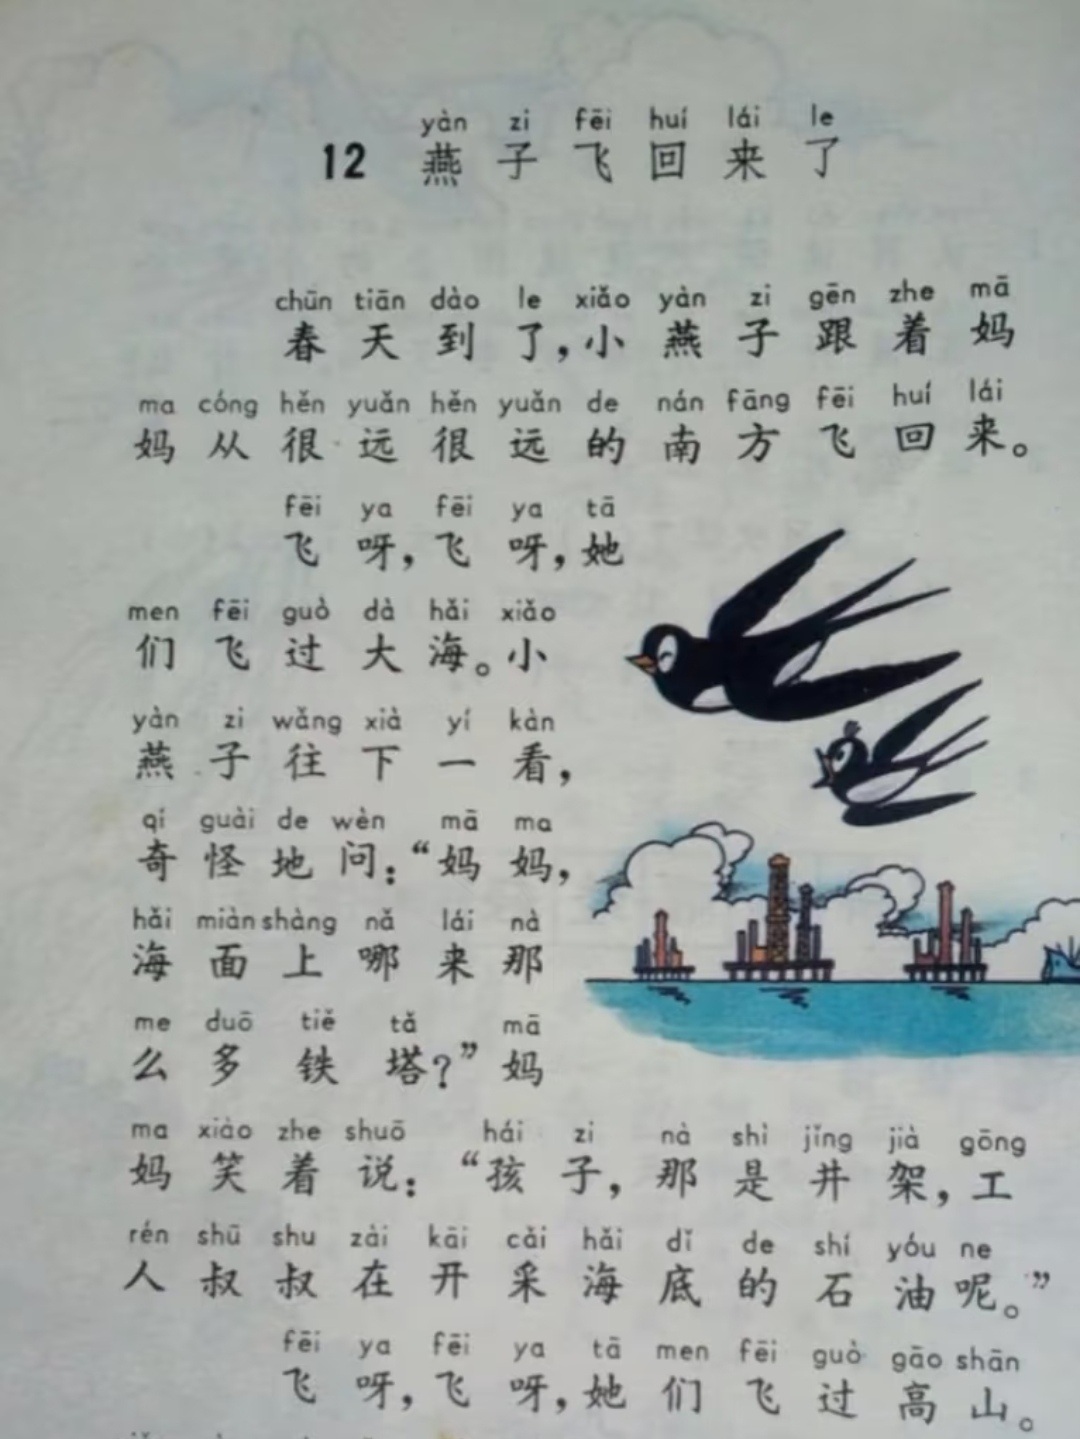 yàn zi fēi huí lái le
12 燕子飞回来了
chūn tiān dào le xiǎo yàn zi gēn zhe mā
春天到了，小燕子跟着妈
ma cóng hěn yuǎn hěn yuǎn de nán fāng fēi huí lái
妈从很远很远的南方飞回来。
fēi ya fēi ya tā
飞呀，飞呀，她
men fēi guò dà hǎi xiǎo
们飞过大海。小
yàn zi wǎng xià yí kàn
燕子往下一看，
qí guài de wèn mā ma
奇怪地问：“妈妈，
hǎi miàn shàng nǎ lái nà
海面上哪来那
me duō tiě tǎ mā
么多铁塔？”妈
ma xiào zhe shuō hái zi nà shì jǐng jià gōng
妈笑着说：“孩子，那是井架，工
rén shū shu zài kāi cǎi hǎi dǐ de shí yóu ne
人叔叔在开采海底的石油呢。”
fēi ya fēi ya tā men fēi guò gāo shān
飞呀，飞呀，她们飞过高山。